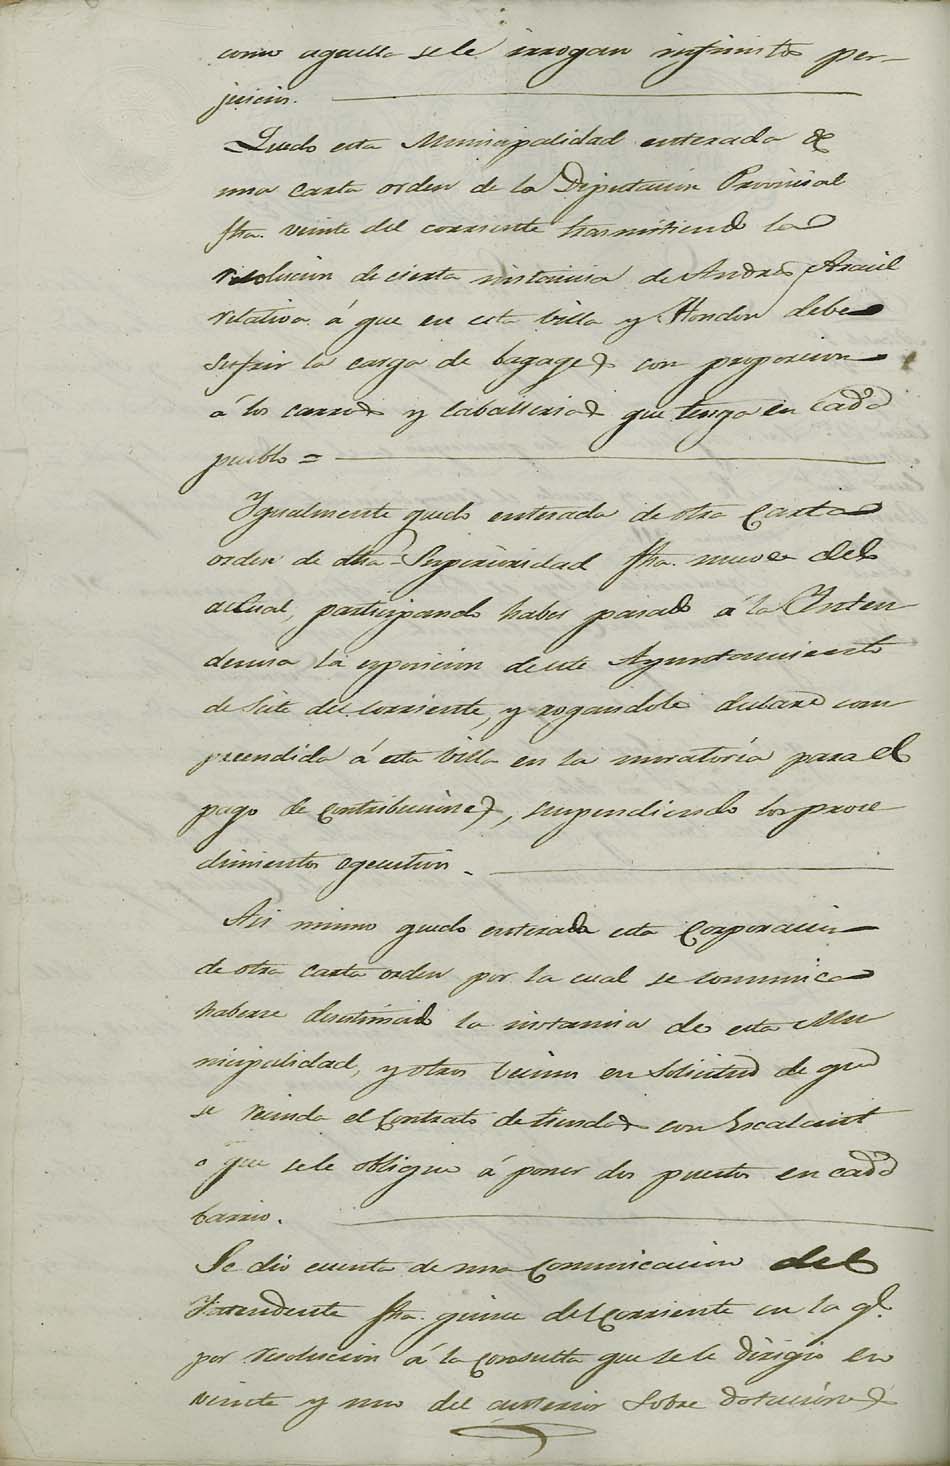 como aquella se le irrogan infinitos per-
juicios.
Quedó esta Municipalidad enterada de
una carta orden de la Diputacion Provincial
fha. veinte del corriente trasmitiendo la
resolucion de cierta instancia de Andres Aracil
relativa á que en esta villa y Hondon debe
sufrir la carga de bagages con proporcion
á los carros y caballerias que tenga en cada
pueblo =
Igualmente quedó enterada de otra carta
orden de dha Superioridad fha. nueve del
actual, participando haber pasado á la Inten
dencia la esposicion de este Ayuntamiento
de siete del corriente, y rogandole declare com
preendida á esta villa en la moratória para el
pago de contribuciones, suspendiendo los proce
dimientos egecutivos.
Asi mismo quedó enterada esta Corporacion
de otra carta orden por la cual se comunica
haberse desestimado la instancia de esta Mu
nicipalidad, y otros vecinos en solicitud de que
se recinda el contrato de tiendas con Escalant
o que se le obligue á poner dos puestos en cada
barrio.
Se dio cuenta de una comunicacion del
Intendente fha. quince del corriente en la ql.
por resolucion á la consulta que se le dirigio en
veinte y uno del anterior sobre dotaciones